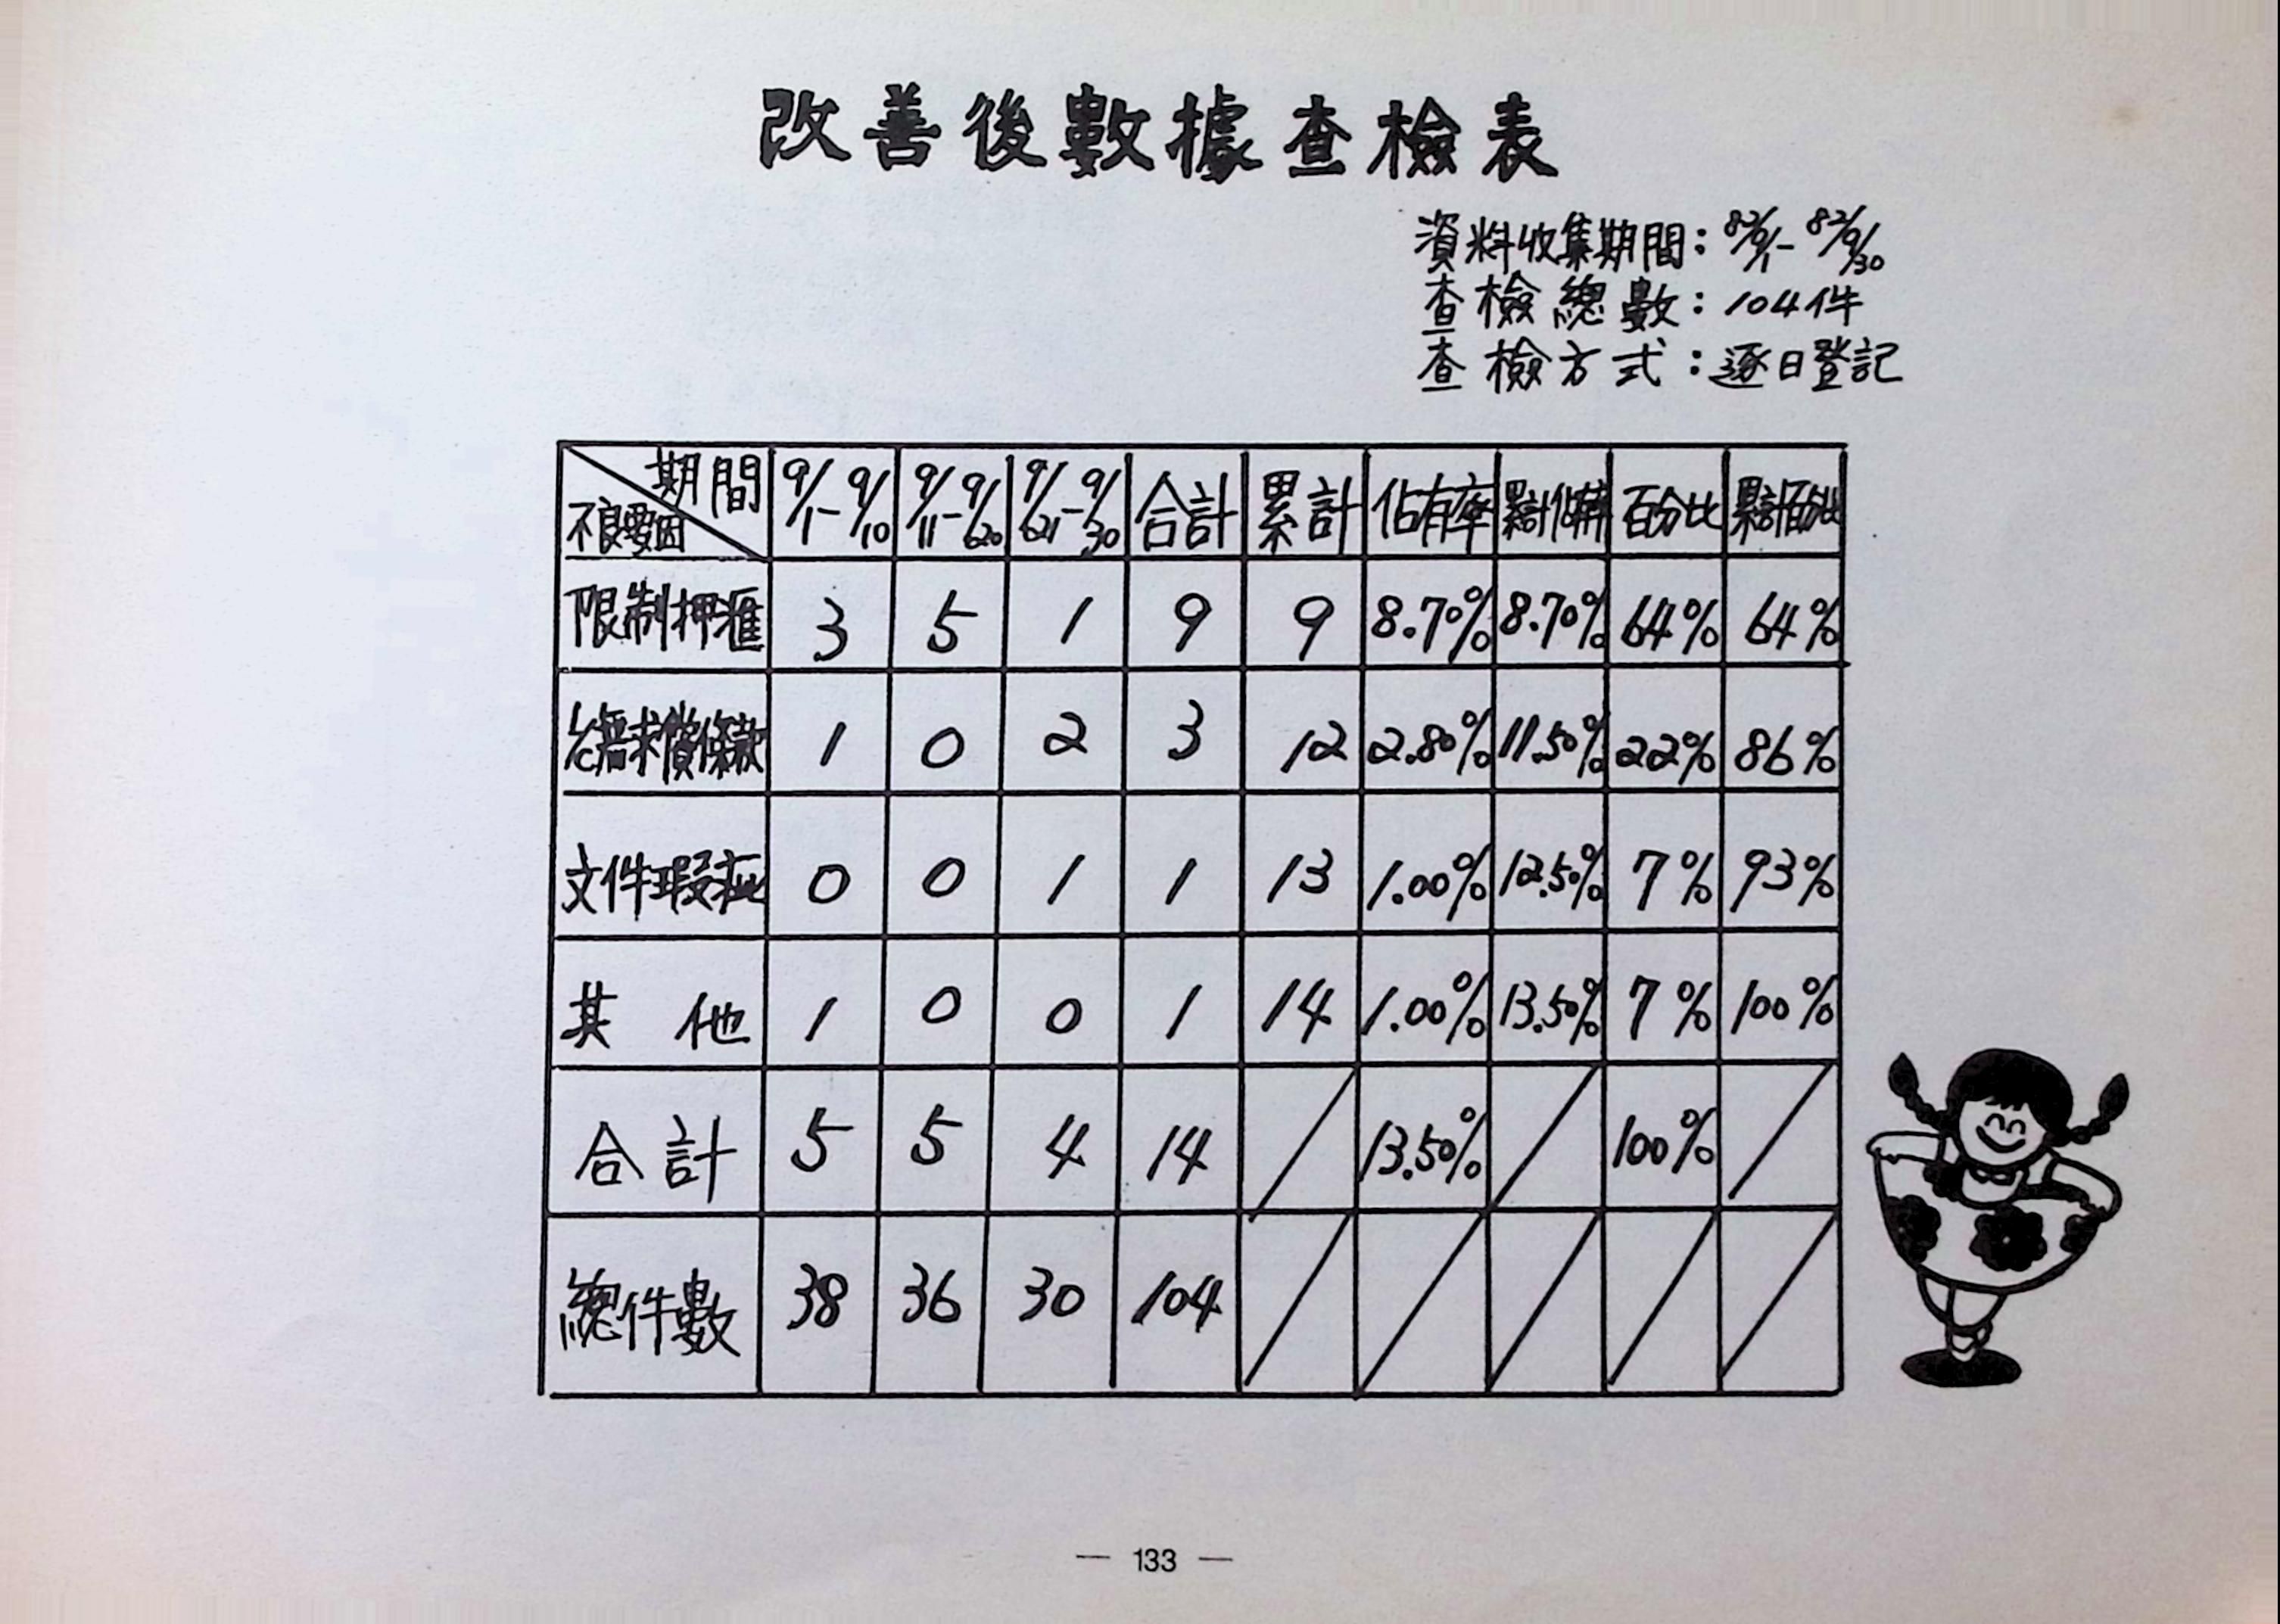 改善後數據查檢表
資料收集期間：82/9/1-82/9/30
查檢總數：104件
查檢方式：逐日登記
期間 9/1-9/10 9/11-9/20 9/21-9/30 合計 累計 佔有率 累計佔有率 百分比 累計百分比
不良要因
限制押滙 3 5 1 9 9 8.70% 8.70% 64% 64%
求償條款 1 0 2 3 12 2.80% 11.50% 22% 86%
文件瑕疵 0 0 1 1 13 1.00% 12.50% 7% 93%
其他 1 0 0 1 14 1.00% 13.50% 7% 100%
合計 5 5 4 14 13.50% 100%
總件數 38 36 30 104
— 133 —